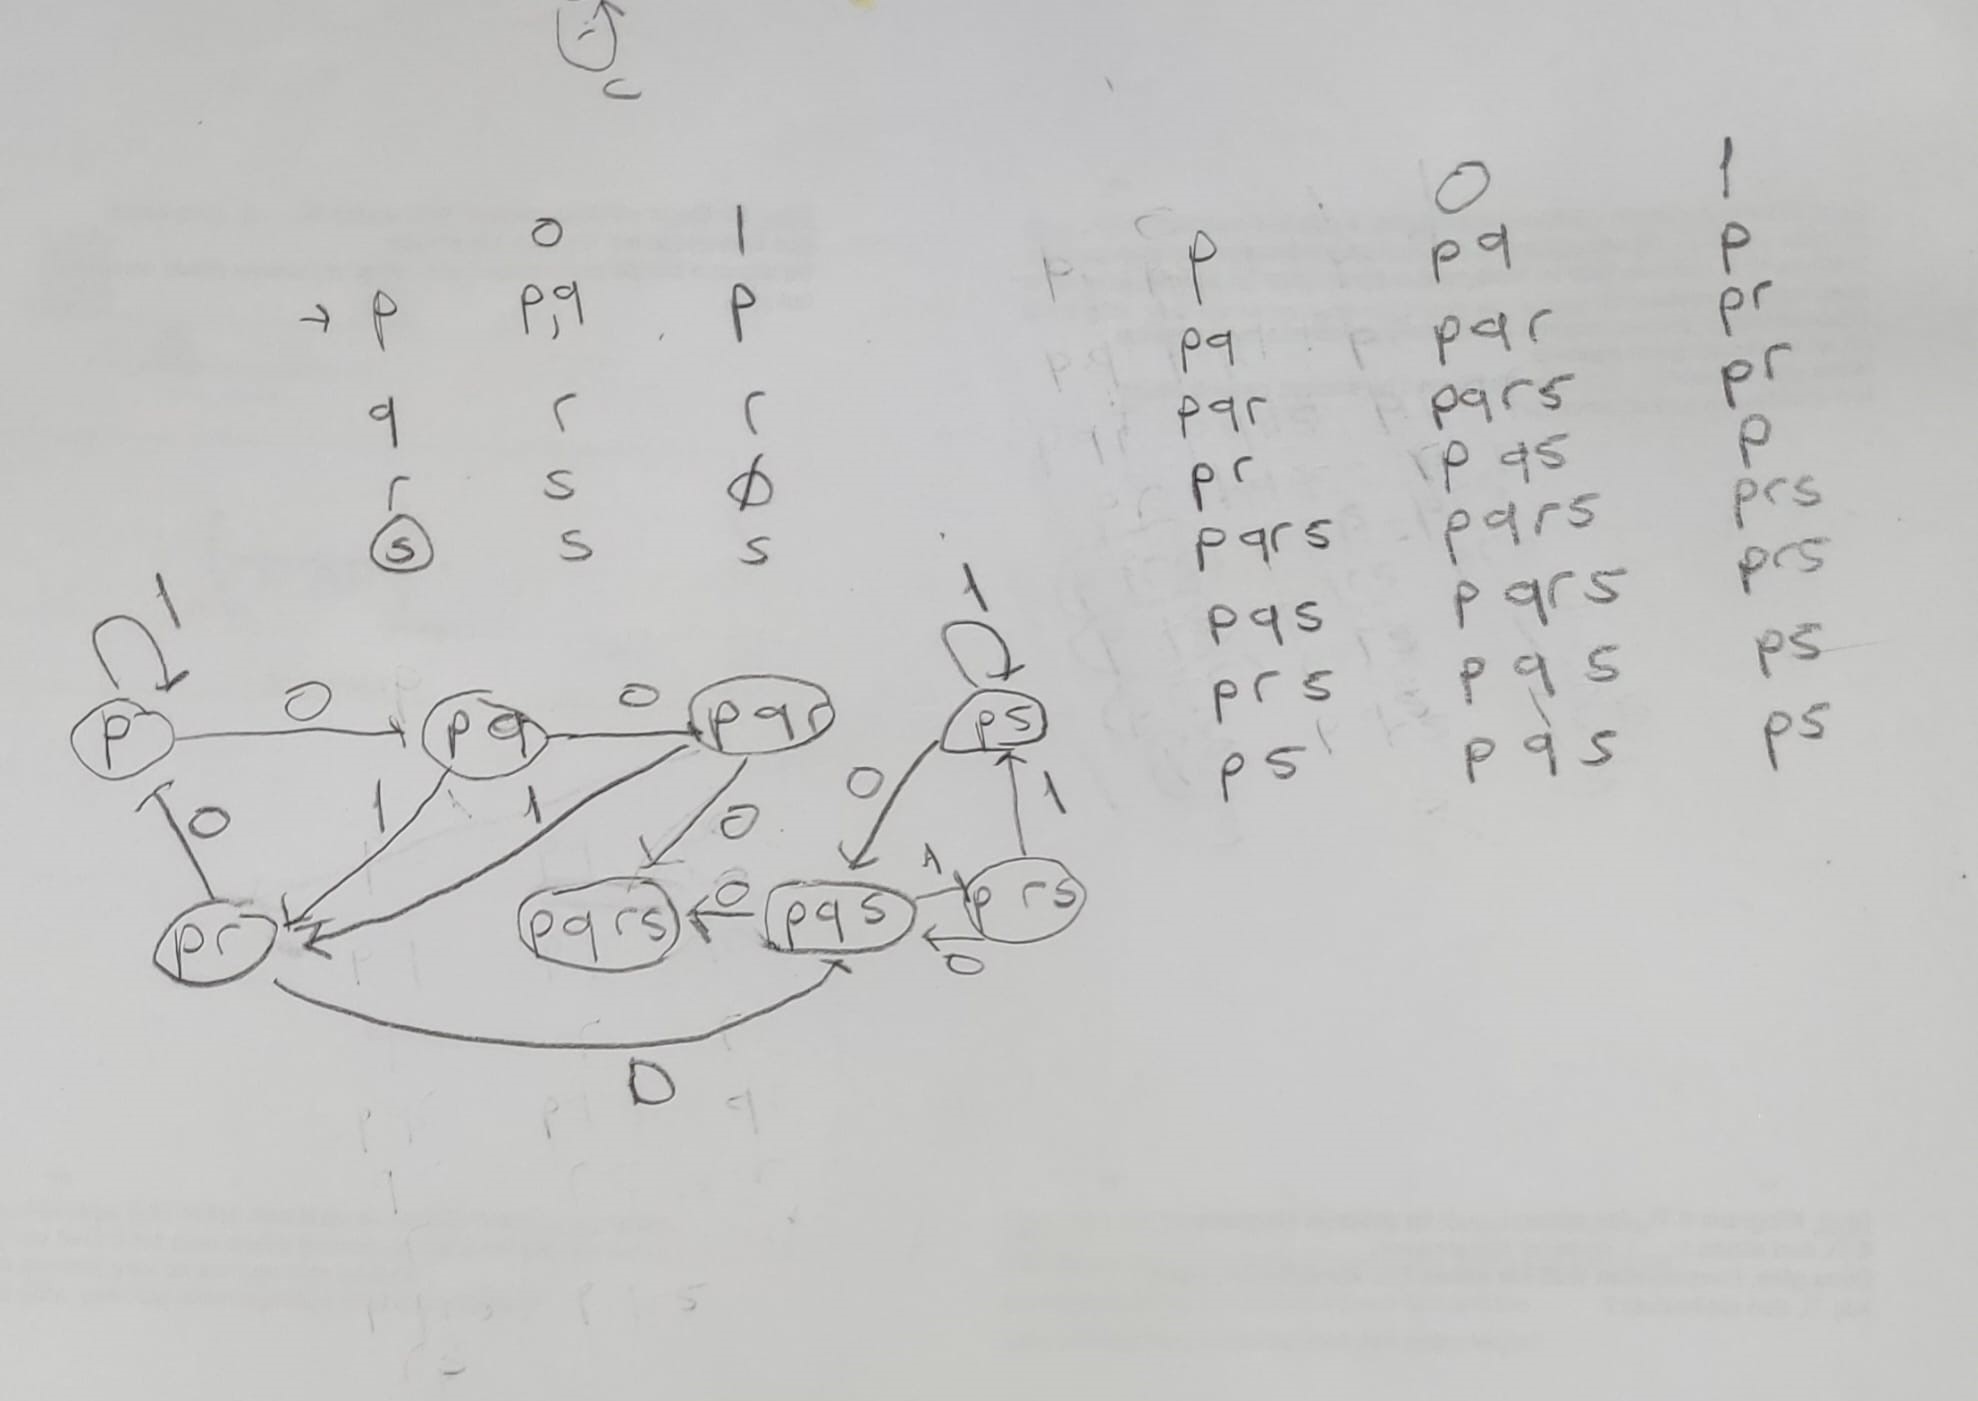 c
0 1
→ p p,q p
q r r
r s ϕ
s s s
0 1
p pq p
pq pqr pr
pqr pqrs pr
pr pqs p
pqrs pqrs prs
pqs pqrs prs
prs pqs ps
ps pqs ps
1 1
p 0 pq 0 pqr ps
0 1 1 0 0 1
pr pqrs 0 pqs 1 prs
0
0